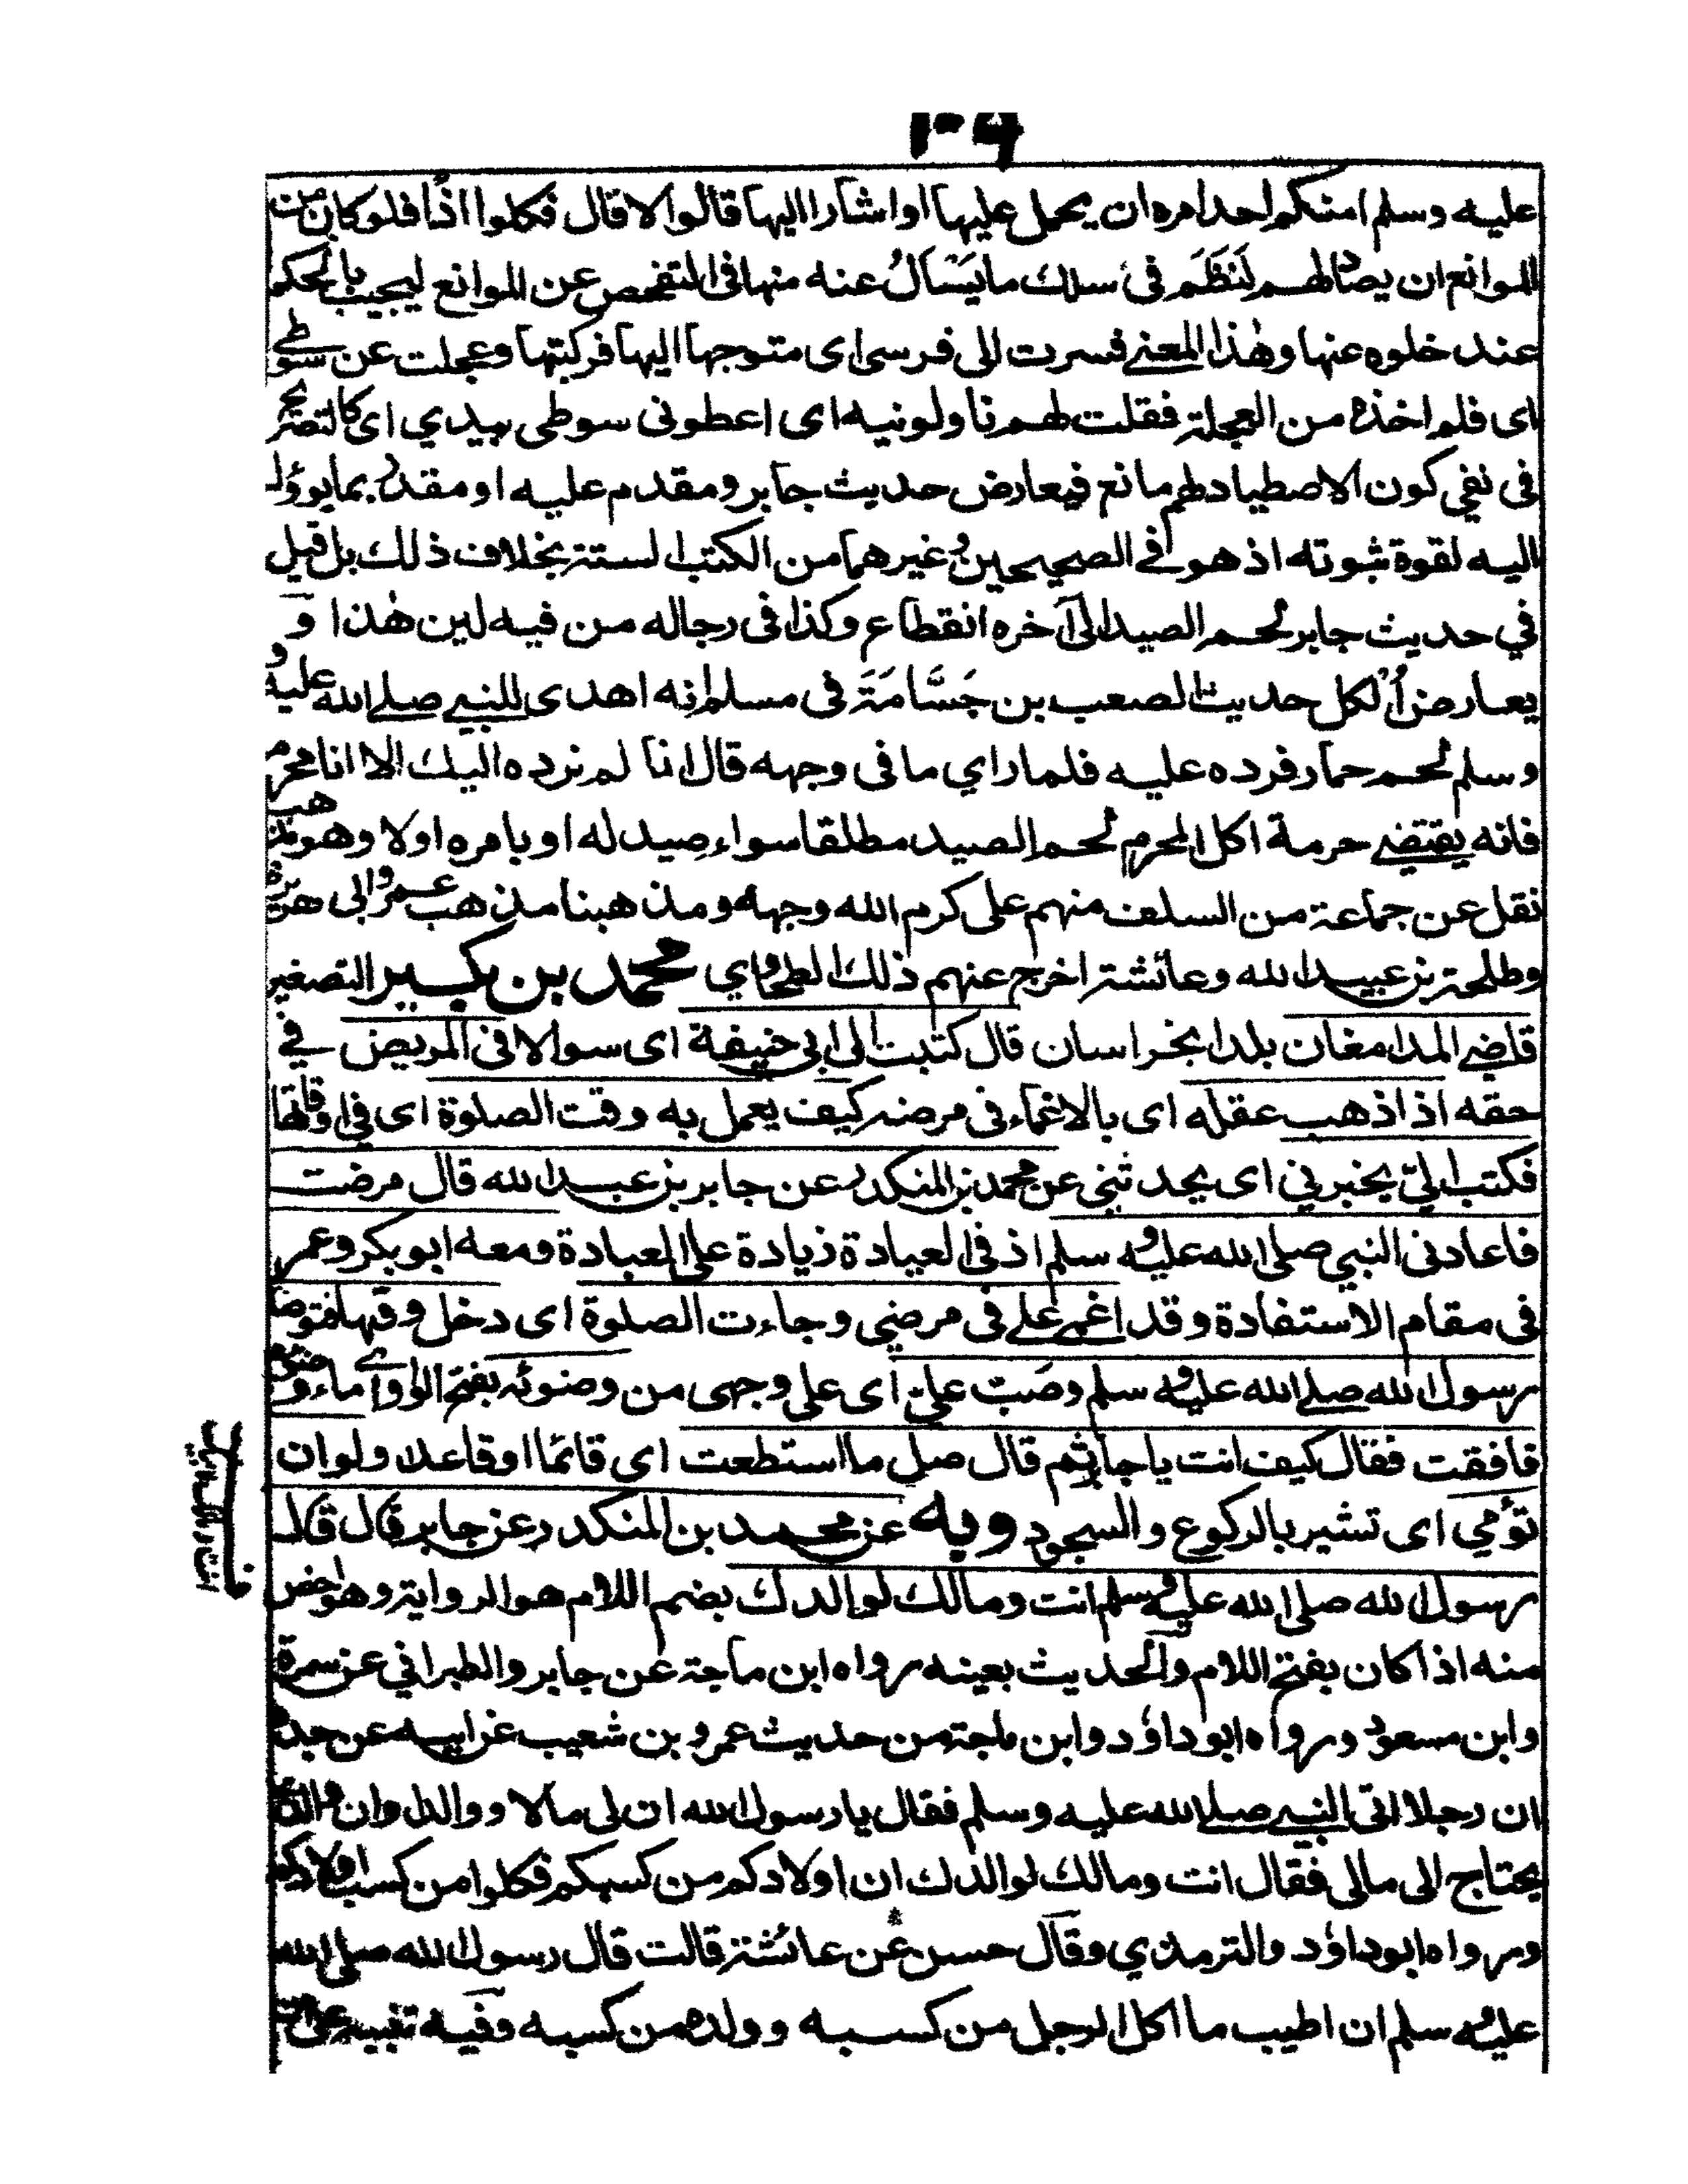 ٣٠٦
عليه وسلم امنكم احد امره ان يحمل عليها او اشار اليها قالوا لا قال فكلوا اذًا فلو كان من
الموانع ان يصاد لهم لَنَظَمَ في سلك ما يَسْأَلُ عنه منها في التفحص عن الموانع ليجيب بالحكم
عند خلوه عنها وهذا المعنى فسرت الى فرسي اى متوجها اليها فركبتها وعجلت عن سوطي
اى فلم اخذه من العجلة فقلت لهم ناولونيه اى اعطونى سوطى بيدي اى كالتصريح
فى نفي كون الاصطياد لهم مانع فيعارض حديث جابر ومقدم عليه او مقدر بما يوؤل
اليه لقوة ثبوته اذ هو في الصحيحين وغيرهما من الكتب الستة بخلاف ذلك بل قيل
في حديث جابر لحم الصيد الى آخره انقطاع وكذا فى رجاله من فيه لين هذا و
يعارض الكل حديث الصعب بن جَسَّامَةَ فى مسلم انه اهدى للنبي صلى الله عليه و
وسلم لحم حمار فرده عليه فلما راي ما فى وجهه قال انا لم نرده اليك الا انا محرم
فانه يقتضي حرمة اكل المحرم لحم الصيد مطلقا سواء صِيد له او بامره اولا وهو مذهب
نقل عن جماعة من السلف منهم على كرم الله وجهه ومذهبنا مذهب عمر وابى هريرة
وطلحة بن عبيد الله وعائشة اخرج عنهم ذلك الطحاوي محمد بن بكير التصغير
قاضي الدامغان بلد بخراسان قال كتبت الى ابى حنيفة اى سوالا فى المريض في
حقه اذا ذهب عقله اى بالاغماء فى مرضه كيف يعمل به وقت الصلوة اى في اوقاتها
فكتب اليّ يخبرني اى يحدثنى عن محمد بن المنكدر عن جابر بن عبد الله قال مرضت
فاعادنى النبي صلى الله عليه وسلم اذ في العيادة زيادة على العبادة ومعه ابو بكر وعمر
فى مقام الاستفادة وقد اغمي علي فى مرضي وجاءت الصلوة اى دخل وقتها فتوضا
رسول الله صلى الله عليه وسلم وصَبّ علي اى على وجهى من وضوئه بفتح الواو اى ماء وضوئه
فافقت فقال كيف انت يا جابر ثم قال صل ما استطعت اى قائما او قاعدا ولو ان
تؤمي اى تشير بالركوع والسجود وبه عن محمد بن المنكدر عن جابر قال قال
رسول الله صلى الله عليه وسلم انت ومالك لوالدك بضم اللام هو الرواية وهو اخص
منه اذا كان بفتح اللام والحديث بعينه رواه ابن ماجة عن جابر والطبراني عن سمرة
وابن مسعود ورواه ابو داؤد وابن ماجة من حديث عمرو بن شعيب عن ابيه عن جده
ان رجلا اتى النبي صلى الله عليه وسلم فقال يا رسول الله ان لى مالا ووالدا وان والدي
يحتاج الى مالى فقال انت ومالك لوالدك ان اولادكم من كسبكم فكلوا من كسب اولادكم
ورواه ابو داؤد والترمذي وقال حسن عن عائشة قالت قال رسول الله صلى الله
عليه وسلم ان اطيب ما اكل الرجل من كسبه وولده من كسبه وفيه تنبيه على ان